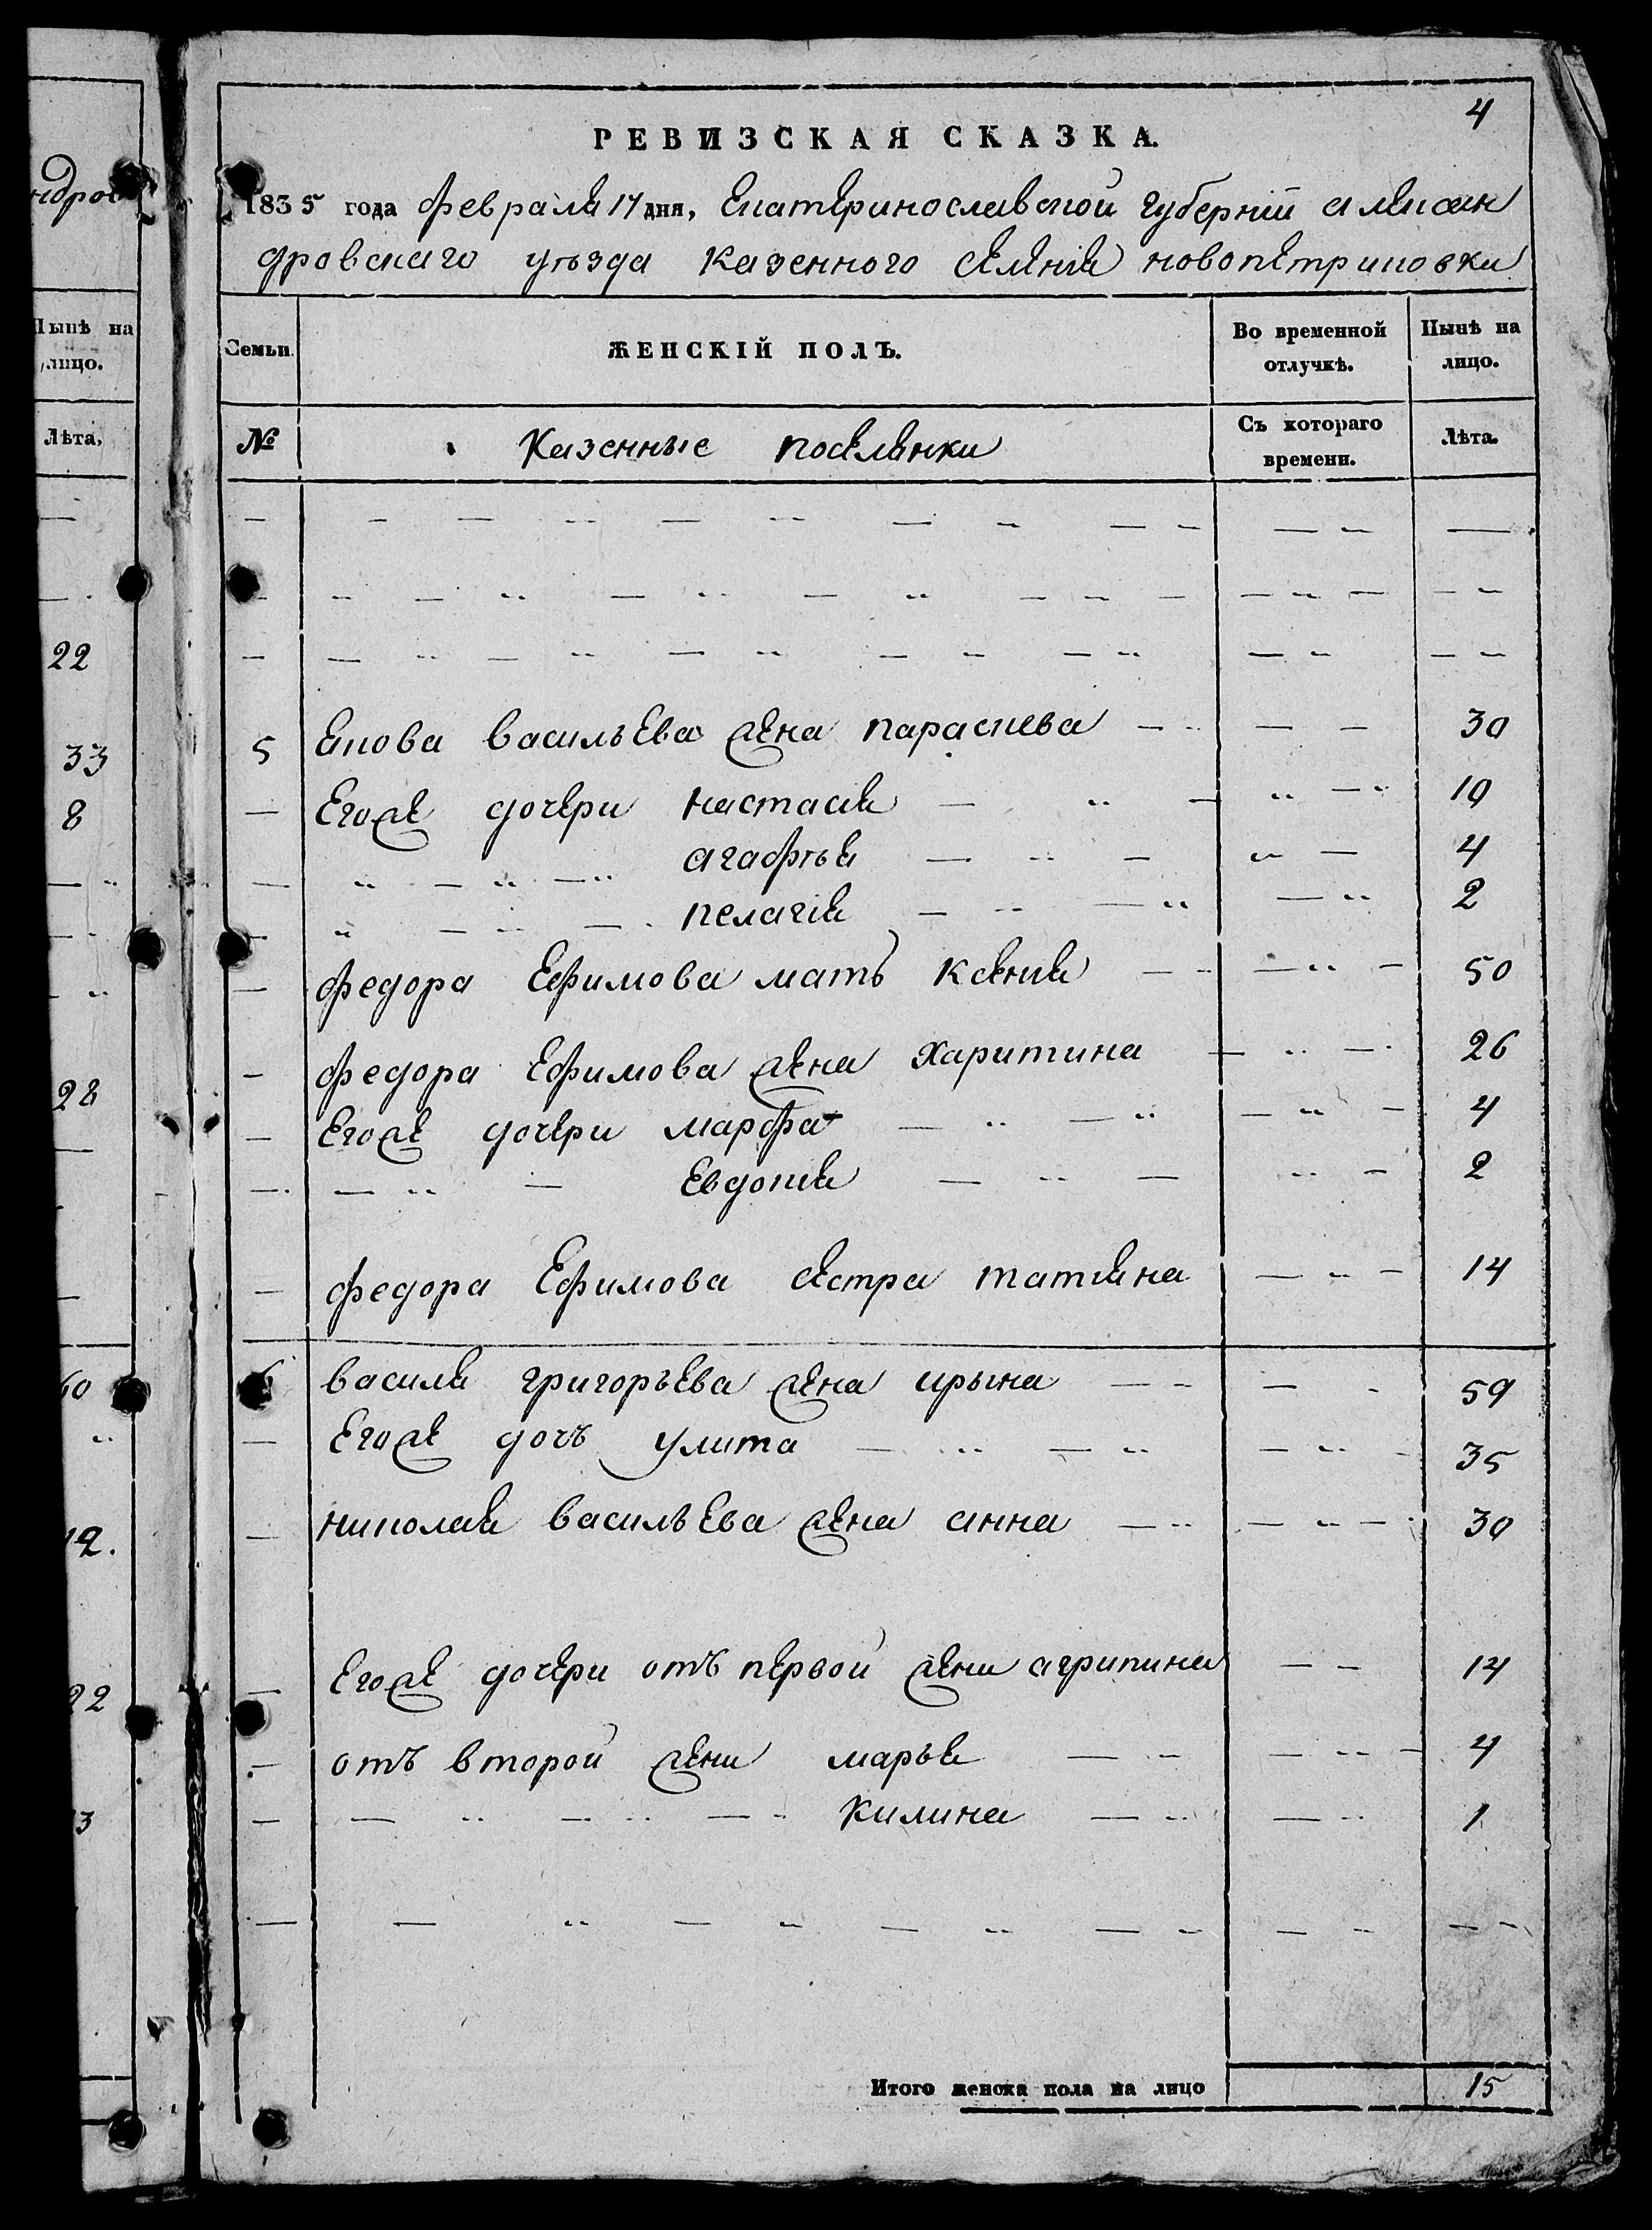 4
РЕВИЗСКАЯ СКАЗКА.
1835 года февраля 17 дня, Екатеринославской губернiи алексан
дровскаго уѣзда казенного селенiя новопетриковки
Семьи.
ЖЕНСКIЙ ПОЛЪ.
Во временной отлучкѣ.
Нынѣ на лицо.
№
Казенные поселянки
Съ котораго времени.
Лѣта.
5 Якова васильева жена параскева 30
Егоже дочери настасiя 10
агафья 4
пелагiя 2
федора Ефимова мать ксенiя 50
федора Ефимова жена Харитина 26
Егоже дочери марфа 4
Евдокiя 2
федора Ефимова сестра татiяна 14
6 василя григорьева жена ирына 59
Егоже дочъ улита 35
николая васильева жена анна 30
Егоже дочери отъ первой жени агрипина 14
отъ второй жени марья 4
Килина 1
Итого женска пола на лицо 15
Нынѣ на
лицо.
Лѣта.
22
33
8
28